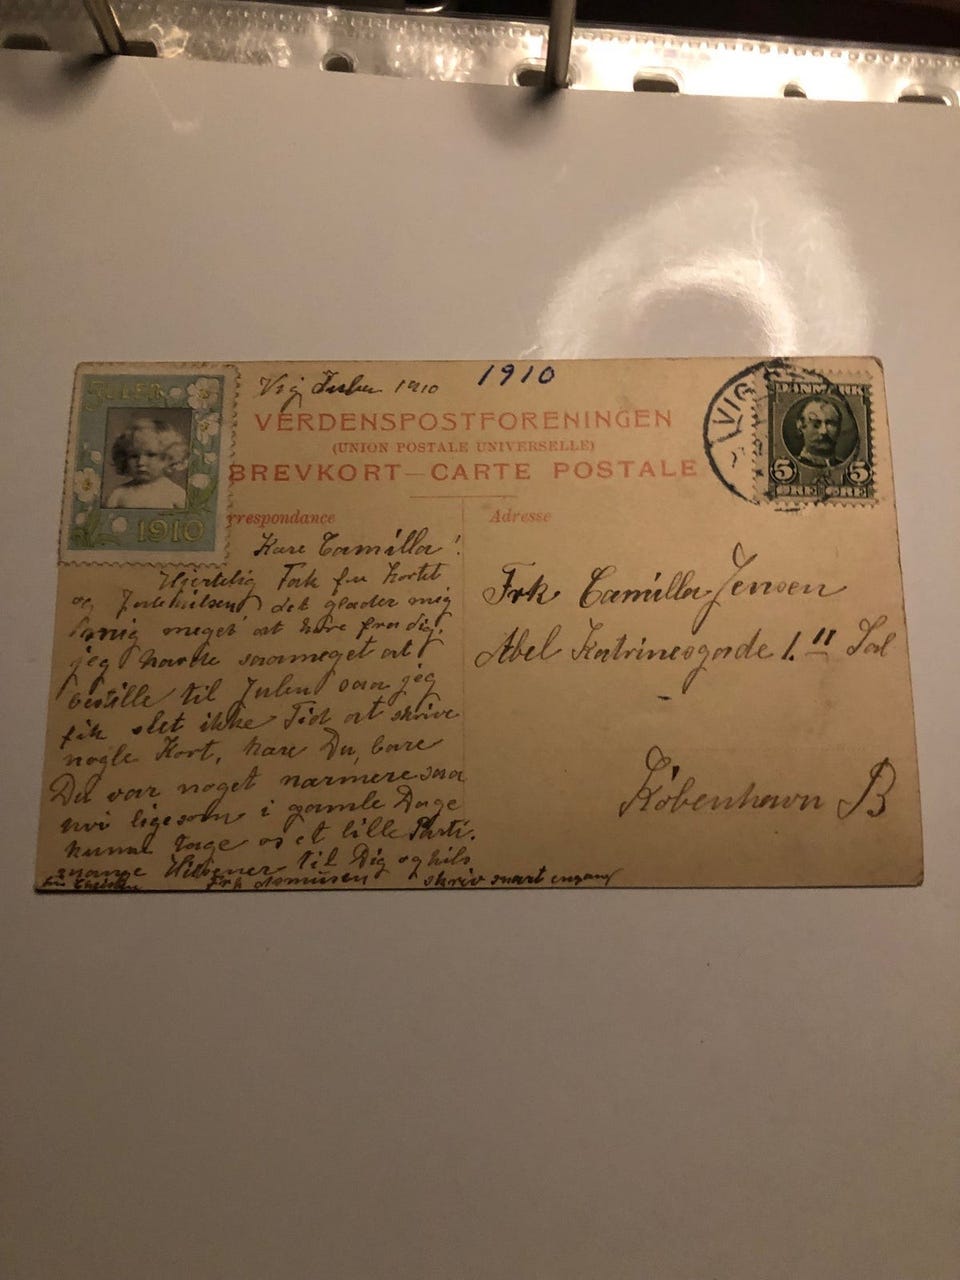 Vig Julen 1910
1910
JULEN
1910
VERDENSPOSTFORENINGEN
(UNION POSTALE UNIVERSELLE)
BREVKORT—CARTE POSTALE
rrespondance
Adresse
VIG
DANMARK
5 5
ØRE ØRE
Kære Camilla!
Hjertelig Tak for Kortet
og Julehilsen det glæder mig
meget at høre fra dig.
jeg havde saameget at
bestille til Julen saa jeg
fik slet ikke Tid at skrive
nogle Kort, kære Du, bare
Du var noget nærmere saa
vi ligesom i gamle Dage
kunne tage os et lille Parti.
mange Hilsener til Dig og hils
Frk Asmussen skriv snart engang
Frk Camilla Jensen
Abel Katrinesgade 1. II Sal
København B